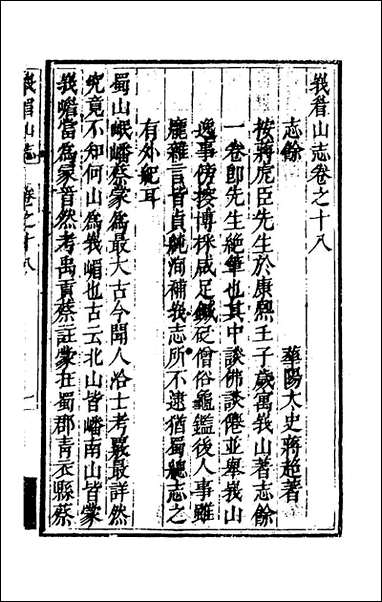 峩眉山志卷之十八
華陽太史蔣超著
志餘
按蔣虎臣先生於康熙壬子歲寓峩山著志餘
一卷卽先生絶筆也其中談佛談僊並舉峩山
逸事傍按博採咸足鍼砭僧俗龜鑑後人事雖
龐雜言皆貞純洵補峩志所不逮猶蜀總志之
有外紀耳
蜀山岷嶓蔡蒙爲最大古今聞人洽士考覈最詳然
究竟不知何山爲峩嵋也古云北山皆嶓南山皆蒙
峩嶓當爲冢首然考禹貢蔡註蒙在蜀郡青衣縣蔡
峩眉山志
卷之十八
一